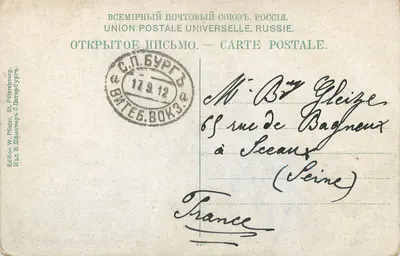 ВСЕМІРНЫЙ ПОЧТОВЫЙ СОЮЗЪ. РОССІЯ.
UNION POSTALE UNIVERSELLE. RUSSIE.
ОТКРЫТОЕ ПИСЬМО. — CARTE POSTALE.
С.П.БУРГЪ
a 17.9.12 a
ВИТЕБ.ВОКЗ.
Mr Bny Gleize
65 rue de Bagneux
à Sceaux
(Seine)
France
Edition W. Pfister, St. Pétersbourg.
Изд. В. Пфистеръ С. Петербургъ.